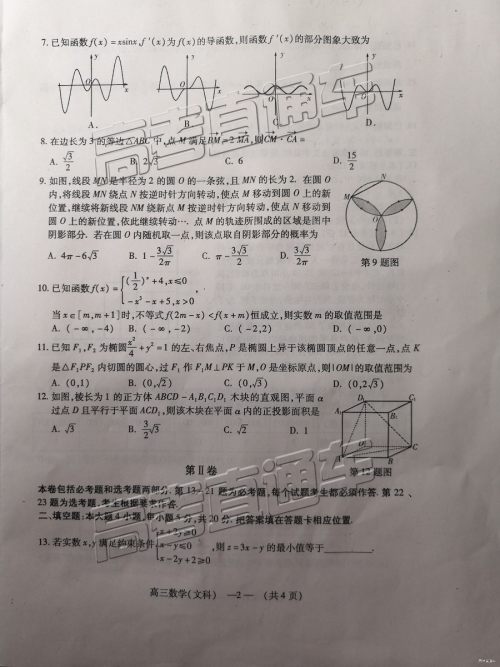 7. 已知函数 f(x)=xsinx, f′(x)为 f(x)的导函数,则函数 f′(x)的部分图象大致为
A. B. C. D.
8. 在边长为 3 的等边△ABC 中,点 M 满足 BM=2 MA,则 CM · CA =
A. √3/2 B. 2√3 C. 6 D. 15/2
9. 如图,线段 MN 是半径为 2 的圆 O 的一条弦,且 MN 的长为 2. 在圆 O
内,将线段 MN 绕点 N 按逆时针方向转动,使点 M 移动到圆 O 上的新
位置,继续将新线段 NM 绕新点 M 按逆时针方向转动,使点 N 移动到
圆 O 上的新位置,依此继续转动…. 点 M 的轨迹所围成的区域是图中
阴影部分. 若在圆 O 内随机取一点,则该点取自阴影部分的概率为
A. 4π−6√3 B. 1−3√3/2π C. π−3√3/2 D. 3√3/2π
第9题图
10. 已知函数 f(x)={(1/2)ˣ+4,x≤0
−x³−x+5,x>0 ,
当 x∈[m,m+1]时,不等式 f(2m−x)<f(x+m)恒成立,则实数 m 的取值范围是
A. (−∞,−4) B. (−∞,−2) C. (−2,2) D. (−∞,0)
11. 已知 F₁,F₂ 为椭圆 x²/4+y²=1 的左、右焦点,P 是椭圆上异于该椭圆顶点的任意一点,点 K
是△F₁PF₂ 内切圆的圆心,过 F₁ 作 F₁M⊥PK 于 M,O 是坐标原点,则|OM|的取值范围为
A. (0,1) B. (0,√2) C. (0,√3) D. (0,2√3)
12. 如图,棱长为 1 的正方体 ABCD−A₁B₁C₁D₁ 木块的直观图,平面 α
过点 D 且平行于平面 ACD₁,则该木块在平面 α 内的正投影面积是
A. √3 B. 3/2√3 C. √2 D. 1
第12题图
第Ⅱ卷
本卷包括必考题和选考题两部分. 第 13~21 题为必考题,每个试题考生都必须作答. 第 22、
23 题为选考题,考生根据要求作答.
二、填空题:本大题 4 小题,每小题 5 分,共 20 分. 把答案填在答题卡相应位置.
13. 若实数 x,y 满足约束条件{x+2y≥0
x−y≤0
x−2y+2≥0 ,则 z=3x−y 的最小值等于________.
高三数学(文科) —2— (共4页)
高考直通车
高考直通车